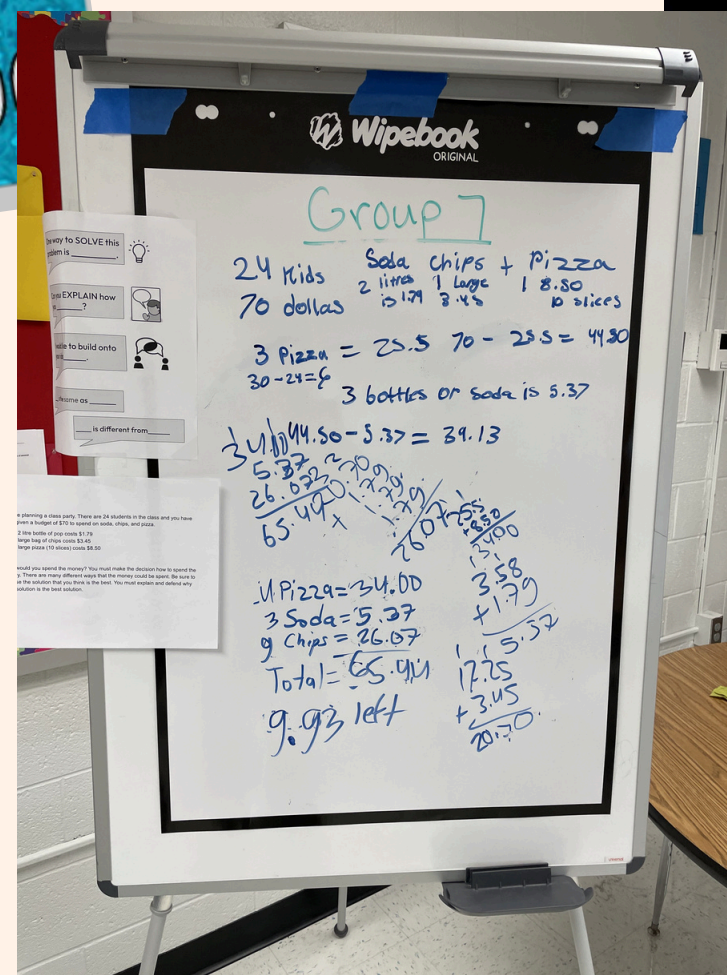 Wipebook
ORIGINAL
Group 7
24 Kids
70 dollas
Soda Chips + Pizza
2 litres 1 Large 1 8.50
is 1.79 3.45 10 slices
3 Pizza = 25.5 70 - 25.5 = 44.50
30-24=6
3 bottles or soda is 5.37
44.50-5.37 = 39.13
5.37
65.44
26.07
3.58
+1.79
5.37
4 Pizza=34.00
3 Soda=5.37
9 Chips=26.07
Total=65.44
9.93 left
17.25
+3.45
20.70
way to SOLVE this
is
EXPLAIN how
?
to build onto
same as
is different from
planning a class party. There are 24 students in the class and you have
given a budget of $70 to spend on soda, chips, and pizza.
2 litre bottle of pop costs $1.79
large bag of chips costs $3.45
large pizza (10 slices) costs $8.50
would you spend the money? You must make the decision how to spend the
There are many different ways that the money could be spent. Be sure to
the solution that you think is the best. You must explain and defend why
solution is the best solution.